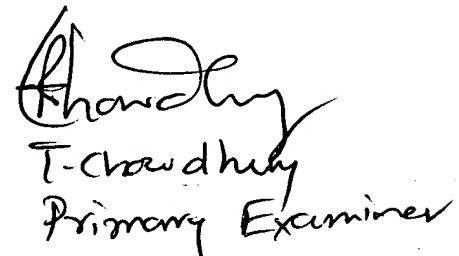 TChowdhury
T-Chowdhury
Primary Examiner